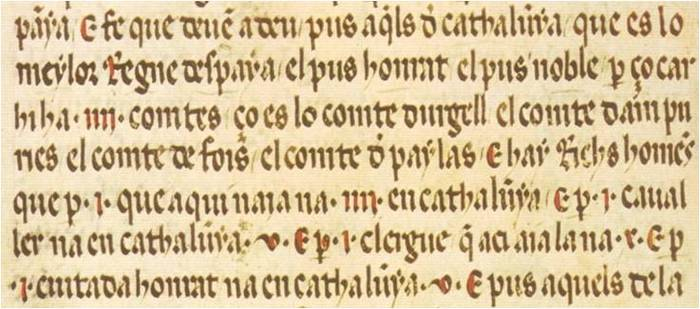 pãya. E fe que deuẽ a deu / pus aq̃ls d̉ cathalũya / que es lo
meylor Regne despaya / el pus honrat / el pus noble / ꝑ ço car
hi ha · iiii · comtes / ço es lo comte durgell / el comte dãpu
ries el comte de foix̃ / el comte d̉ paylas / E hay Richs homẽs
que ꝑ · i · que aqui naia na · iiii · en cathalũya / E ꝑ · i · caual
ler na en cathalũya · v · E ꝑ · i · clergue q̃ aci aia la na · x · E ꝑ
· i · ciutada honrat na en cathalũya · v · E pus aquels de la